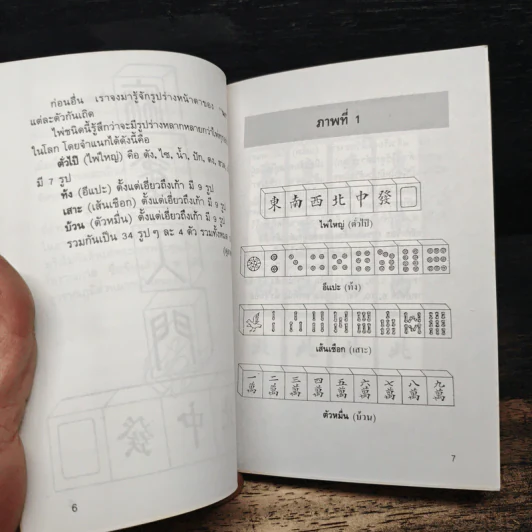 ก่อนอื่น เราจงมารู้จักรูปร่างหน้าตาของ
แต่ละตัวกันเถิด
ไพ่ชนิดนี้รู้สึกว่าจะมีรูปร่างหลากหลายกว่าไพ่
ในโลก โดยจำแนกได้ดังนี้คือ
ตัวไป๋ (ไพ่ใหญ่) คือ ตัง, ไซ, น้ำ, ปัก,
มี 7 รูป
ท้ง (อีแปะ) ตั้งแต่เอี่ยวถึงเก้า มี 9 รูป
เสาะ (เส้นเชือก) ตั้งแต่เอี่ยวถึงเก้า มี 9 รูป
บ้วน (ตัวหมื่น) ตั้งแต่เอี่ยวถึงเก้า มี 9 รูป
รวมกันเป็น 34 รูป ๆ ละ 4 ตัว
6
ภาพที่ 1
東 南 西 北 中 發
ไพ่ใหญ่ (ตัวไป๋)
อีแปะ (ท้ง)
เส้นเชือก (เสาะ)
一萬 二萬 三萬 四萬 五萬 六萬 七萬 八萬 九萬
ตัวหมื่น (บ้วน)
7